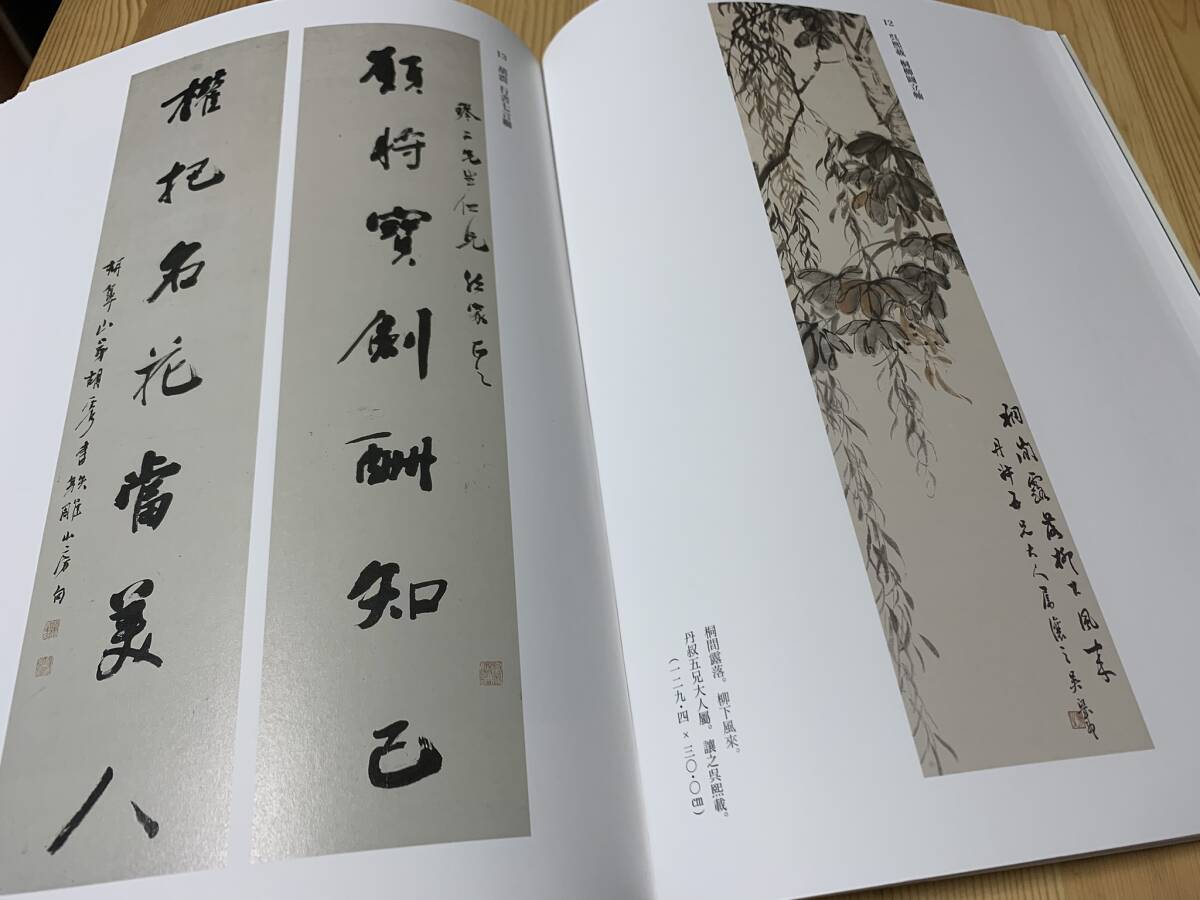 12 呉熙載 桐柳図立軸
桐間露落柳下風來
丹叔五兄大人屬讓之吳熙載
桐間露落。柳下風來。
丹叔五兄大人屬。讓之吳熙載。
(一二九・四 × 三〇・〇㎝)
13 胡震 行書七言聯
琴二先生仁兄法家正之
願將寶劍酬知己
權把名花當美人
胡震書
山房句